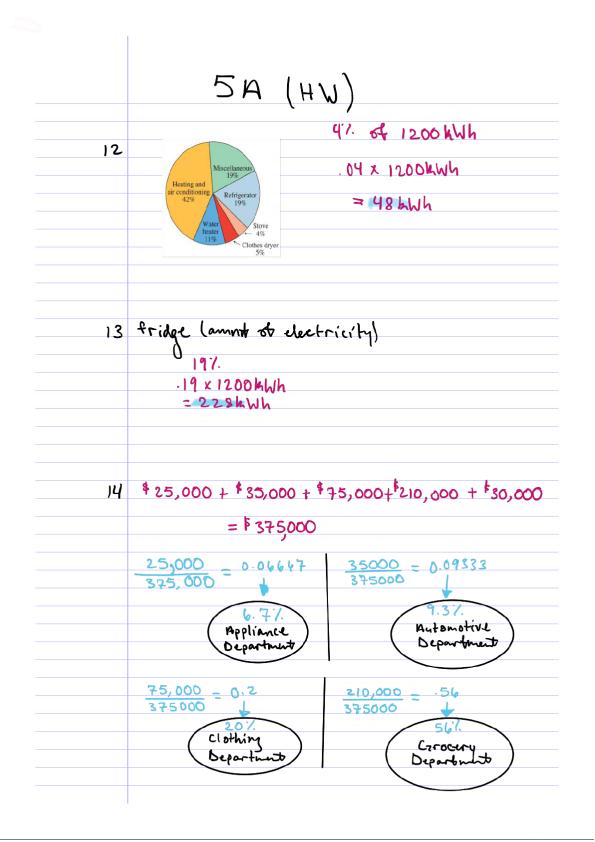 5A (HW)
12
Miscellaneous
19%
Heating and
air conditioning
42%
Refrigerator
19%
Water
heater
11%
Stove
4%
Clothes dryer
5%
4% of 1200kWh
.04 x 1200kWh
= 48kWh
13 fridge (amnt of electricity)
19%
.19 x 1200kWh
= 228kWh
14 $25,000 + $35,000 + $75,000 + $210,000 + $30,000
= $375,000
25,000
375,000
= 0.06667
6.7%
Appliance
Department
35000
375000
= 0.09333
9.3%
Automotive
Department
75,000
375000
= 0.2
20%
Clothing
Department
210,000
375000
= .56
56%
Grocery
Department